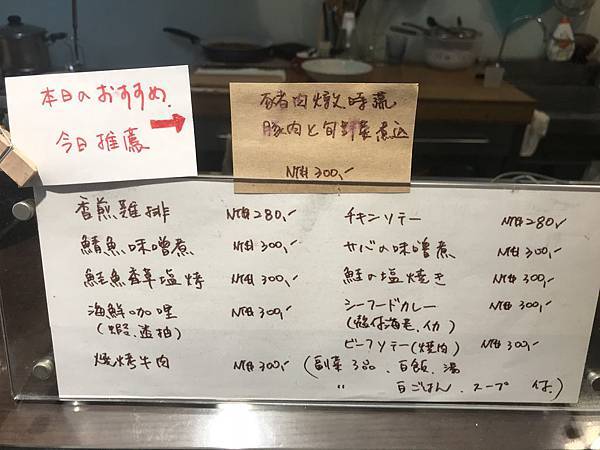 本日のおすすめ.
今日推薦
豬肉燉時蔬
豚肉と旬野菜煮込
NT$ 300,-
香煎雞排 NT$ 280,- チキンソテー NT$ 280,-
鯖魚味噌煮 NT$ 300,- サバの味噌煮 NT$ 300,-
鮭魚香草塩烤 NT$ 300,- 鮭の塩焼き NT$ 300,-
海鮮咖哩 NT$ 300,- シーフードカレー NT$ 300,-
(蝦、透抽) (殻付海老、イカ)
燒烤牛肉 NT$ 300,- ビーフソテー(焼肉) NT$ 300,-
(副菜3品、白飯、湯
〃 白ごはん、スープ 付.)